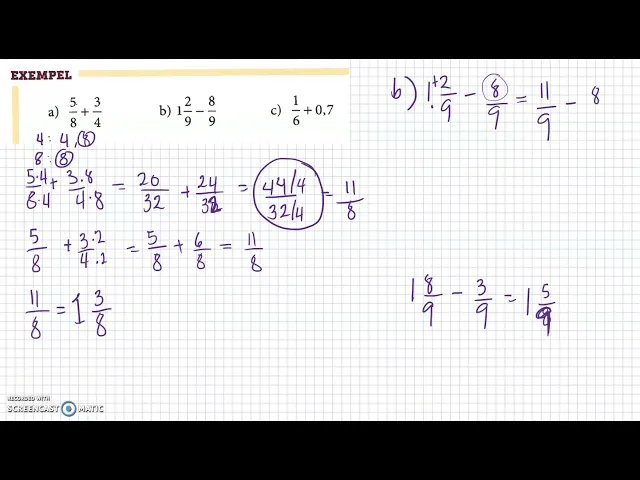 EXEMPEL
a) 5/8 + 3/4 b) 1 2/9 − 8/9 c) 1/6 + 0,7
4: 4, 8
8: 8
5·4/8·4 + 3·8/4·8 = 20/32 + 24/32 = 44/4/32/4 = 11/8
5/8 + 3·2/4·2 = 5/8 + 6/8 = 11/8
11/8 = 1 3/8
b) 1 + 2/9 − 8/9 = 11/9 − 8
1 8/9 − 3/9 = 1 5/9
RECORDED WITH
SCREENCAST MATIC